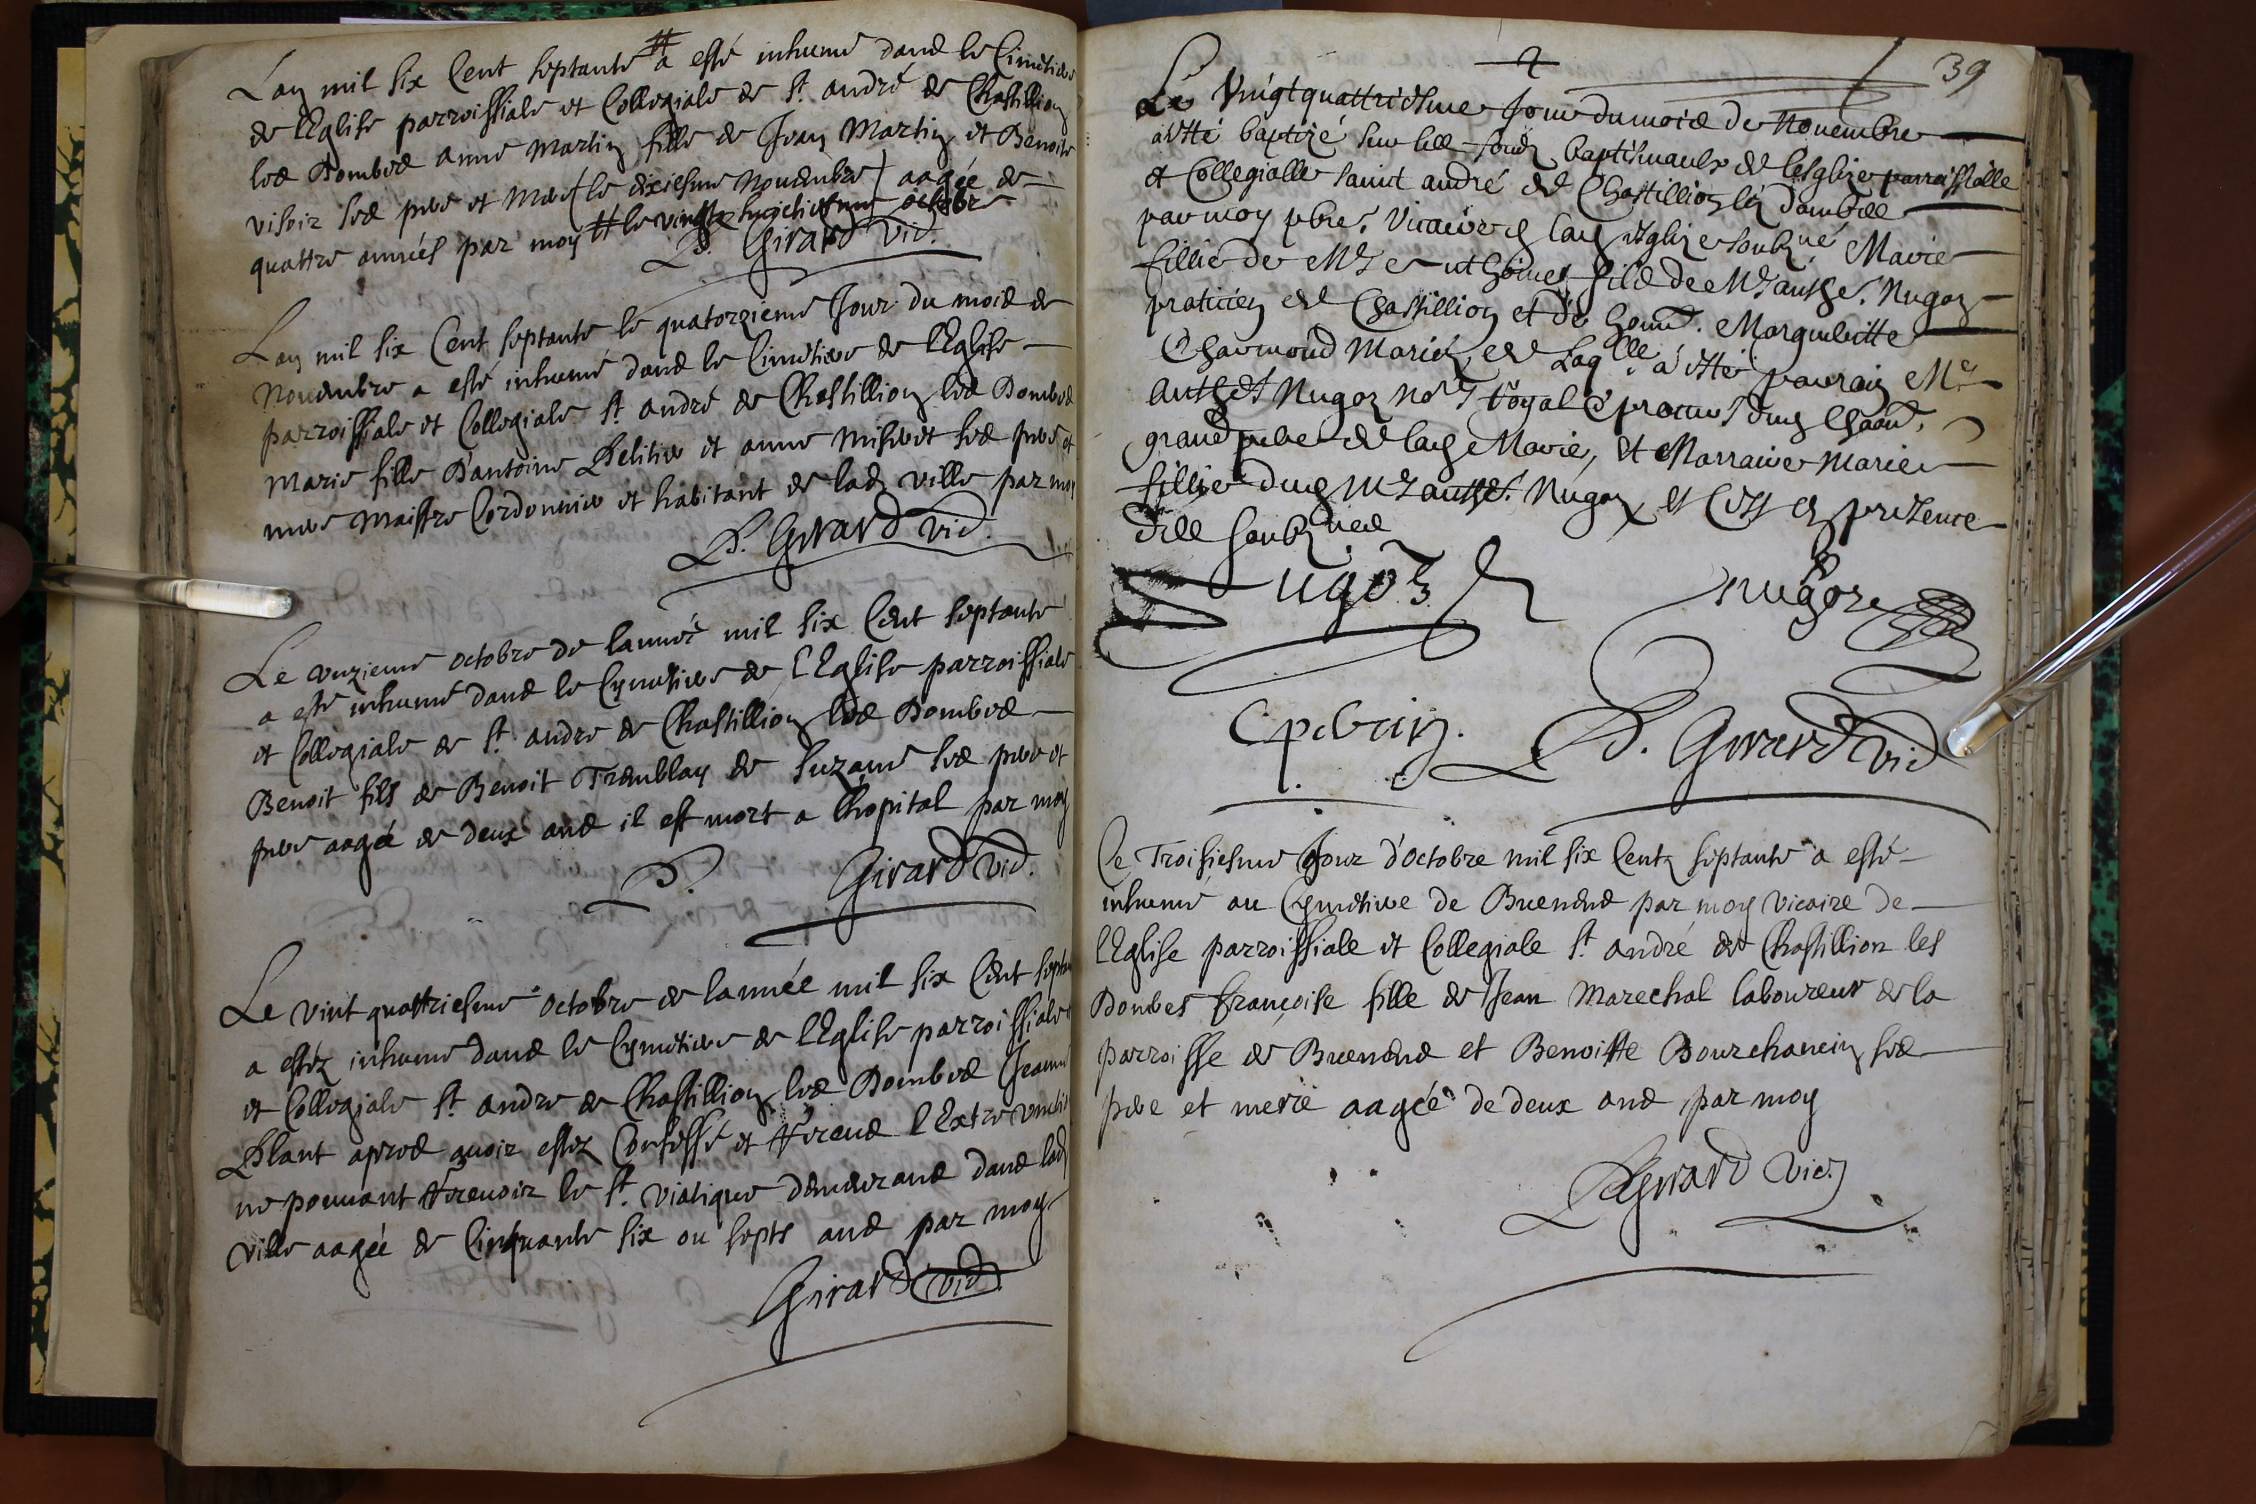 Lan mil six Cent septante # a esté inhumé dans le Cimetiere
de lEglise parroissiale et Collegiale de St. andré de Chastillion
les Dombes anne Martin fille de Jean Martin et Benoite
visoir ses pere et Mere (le dixiesme Novembre) aagée de
quattre années par moy # le vingt huictiesme octobre
P. Girard Vic.
Lan mil six Cent septante le quatorzieme Jour du mois de
Novembre a esté inhumé dans le Cimetiere de lEglise
parroissiale et Collegiale St. andré de Chastillion les Dombes
Marie fille Dantoine et anne ses pere et
mere Maistre Cordonnier et habitant de lad. ville par moy
P. Girard Vic.
Le unzieme octobre de lannée mil six Cent septante
a esté inhumé dans le Cymetiere de lEglise parroissiale
et Collegiale de St. andré de Chastillion les Dombes
Benoit fils de Benoit Tremblay de Suzanne ses pere et
pere aagée de deux ans il est mort a lhopital par moy
P. Girard Vic.
Le vint quattriesme octobre de lannée mil six Cent septante
a estéz inhumé dans le Cymetiere de lEglise parroissiale
et Collegiale St. andré de Chastillion les Dombes Jeanne
apres avoir estéz Confessé et receue lExtre
ne pouvant recevoir le St. Viatique demeurans dans lad.
ville aagée de Cinquante six ou septs ans par moy
Girard Vic.
39
Le Vingtquattriesme Jour du mois de Novembre
a estté baptizé sur les fondz baptismaulx de lesglize parroissialle
et Collegialle saint andré de Chastillion les dombes
par moy pbre. Vicaire en lad. esglize soubzné Marie
fillie de Me fils de Me anthe. Nugoz
praticien de Chastillion et de honn. Marguleitte
Charmond Mariez, de laqlle. a estté parrain Me
anthe. Nugoz nore Royal & procur. dud. Chaon.
grand pere de lad. Marie, et Marraine Marie
fillie dud. Me anthe. Nugoz et en presence
des soubznes
Nugoz
Nugoz
P. Girard Vic
Ce Troisiesme Jour d'octobre mil six Centz septante a esté
inhumé au Cymetiere de Buenend par moy Vicaire de
lEglise parroissiale et Collegiale St. andré de Chastillion les
Dombes françoise fille de Jean Marechal laboureur de la
parroisse de Buenend et Benoitte Bourchanein ses
pere et merie aagée de deux ans par moy
P Girard Vic.